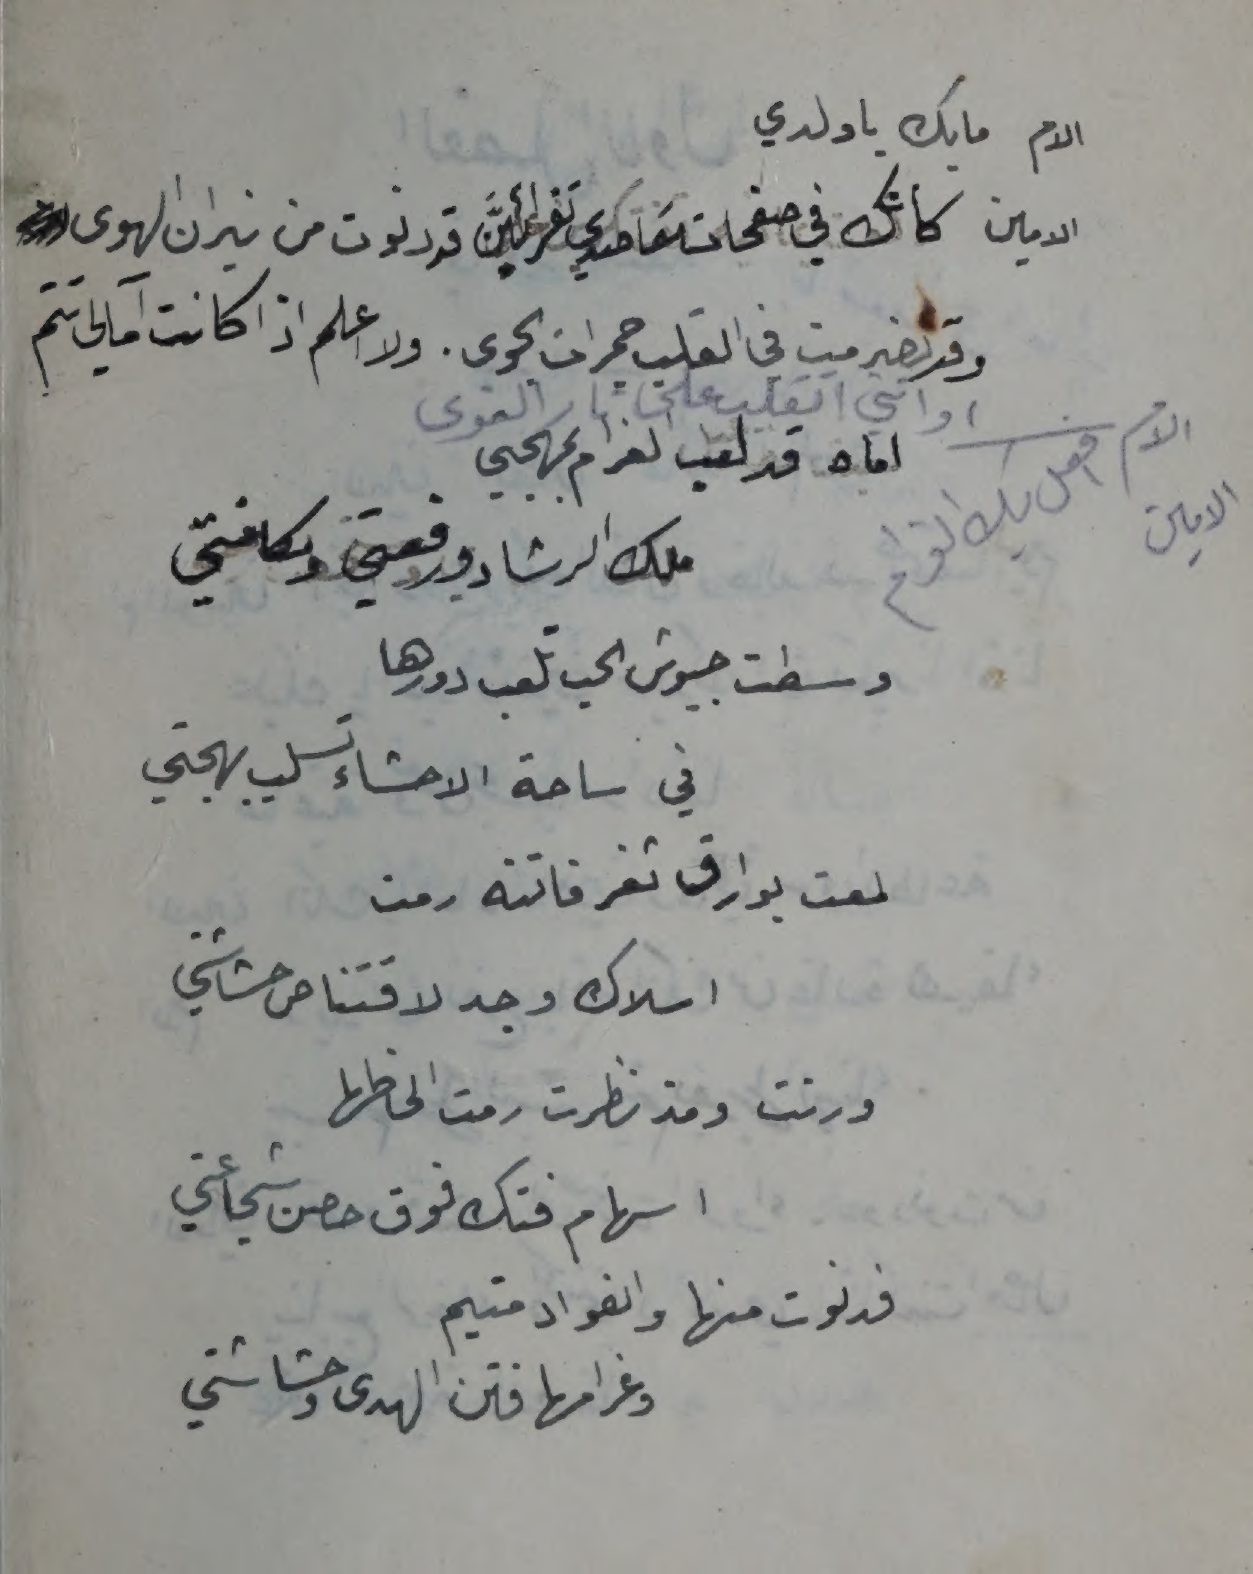 الام مابك ياولدي
الامين كأنك في صفحات مقاصدي تقرأين قد دنوت من نيران الهوى
وقد تضرمت في القلب جمرات الجوى . ولا اعلم اذا كانت آمالي تتم
او انني اتقلب على نار
الام افعل بك الغرام
الامين
اماه قد لعب الغرام بمهجتي
ملك الرشاد ورفعتي ومكانتي
وسطت جيوش الحب تلعب دورها
في ساحة الاحشاء تسلب بهجتي
لمعت بوارق ثغر فاتنه رمت
اسلاك وجد لاقتناص حشاشتي
ورنت ومذ نظرت رمت الحاظها
اسهام فتك فوق حصن شجاعتي
فدنوت منها والفواد متيم
وغرامها فتن الهدى وحشاشتي